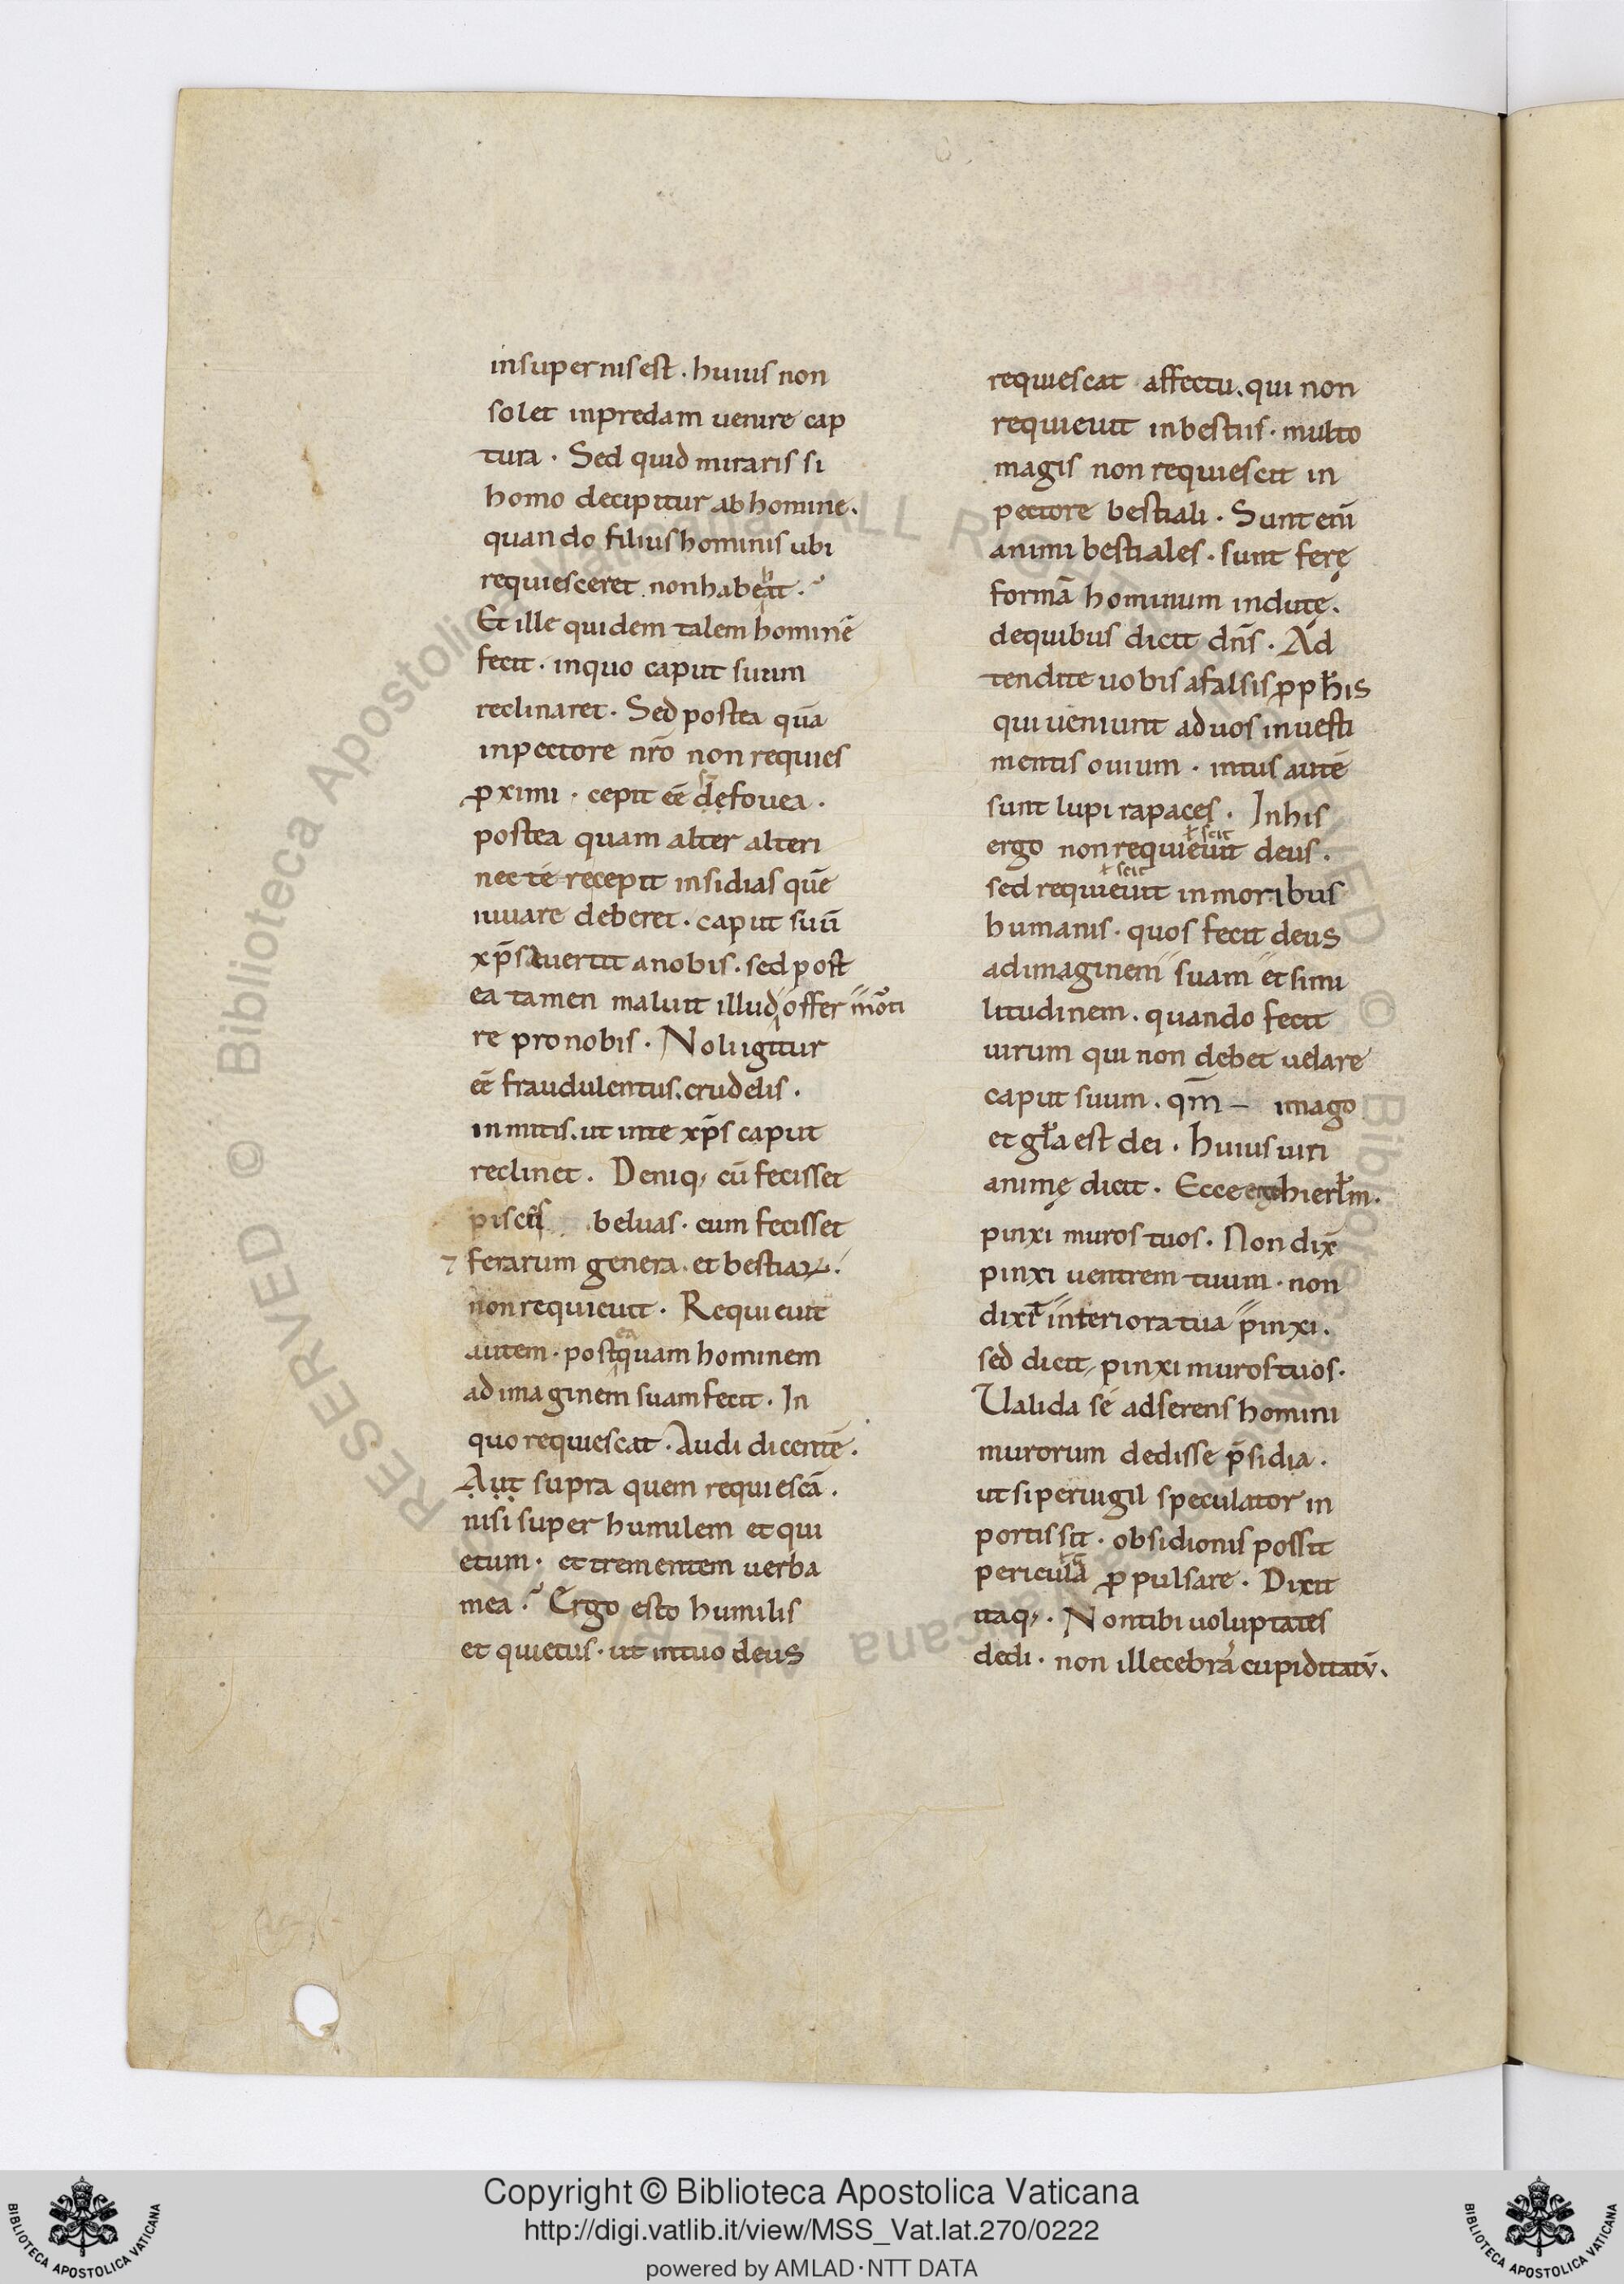 insupernis est. huius non
solet inpredam uenire cap
tura. Sed quid miraris si
homo decipitur ab homine.
quando filius hominis ubi
requiesceret non habeat.
Et ille quidem talem hominē
fecit. inquo caput suum
reclinaret. Sed postea quā
inpectore nr̄o non requies
ꝓximi. cepit eē defouea.
postea quam alter alteri
nec te recepit insidias quē
iuuare deberet. caput suū
xp̄s auertit anobis. sed post
ea tamen maluit illud offer morti
re pro nobis. Noli igitur
eē fraudulentus. crudelis.
inmitis. ut inte xp̄s caput
reclinet. Deniq; cū fecisset
pisces beluas. cum fecisset
⁊ ferarum genera. et bestiaꝝ.
non requieuit. Requieuit
autem. post ea quam hominem
ad imaginem suam fecit. In
quo requiescat. Audi dicentē.
Aut supra quem requiescā.
nisi super humilem et qui
etum. et trementem uerba
mea. Ergo esto humilis
et quietus. ut intuo deus
requiescat affectu. qui non
requieuit inbestiis. multo
magis non requiescit in
pectore bestiali. Sunt enī
animi bestiales. sunt ferę
formā hominum indutę.
dequibus dicit dn̄s. Ad
tendite uobis afalsis ꝓphis
qui ueniunt ad uos inuesti
mentis ouium. intus autē
sunt lupi rapaces. In his
ł scit
ergo non requieuit deus.
ł scit
sed requieuit inmoribus
humanis. quos fecit deus
ad imaginem suam et simi
litudinem. quando fecit
uirum qui non debet uelare
caput suum. qm̄ imago
et gła est dei. huius uiri
animę dicit. Ecce ego hierłm.
pinxi muros tuos. Non dix̄
pinxi uentrem tuum. non
dixit interiora tua pinxi.
sed dicit pinxi muros tuos.
Ualida se adserens homini
murorum dedisse p̄sidia.
ut si peruigil speculator in
portis sit. obsidionis possit
pericula ꝓpulsare. Dixit
itaq;. Non tibi uoluptates
dedi. non illecebra cupiditatū.
Copyright © Biblioteca Apostolica Vaticana
http://digi.vatlib.it/view/MSS_Vat.lat.270/0222
powered by AMLAD·NTT DATA